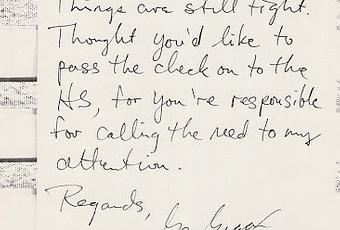 Things are still tight.
Thought you'd like to
pass the check on to the
HS, for you're responsible
for calling the need to my
attention.
Regards,